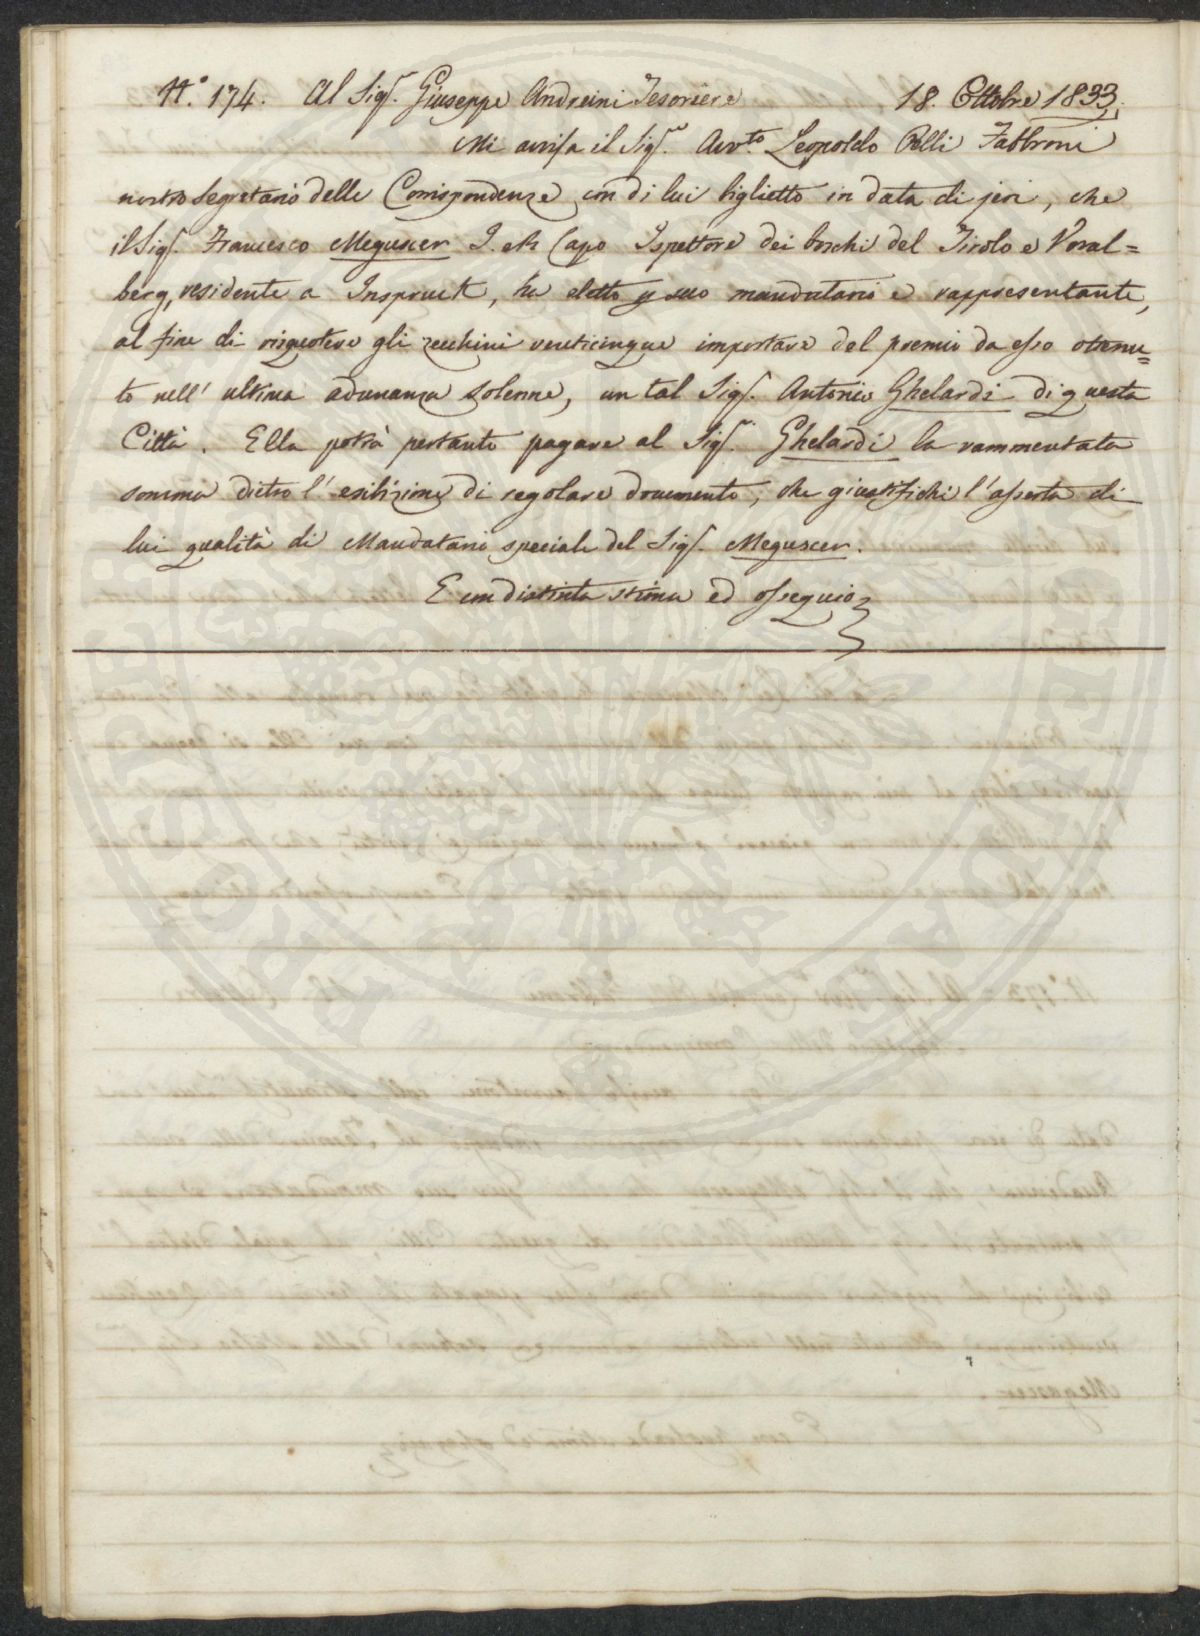 N.° 174. Al Sig.r Giuseppe Andreini Tesoriere 18. Ottobre 1833.
Mi avvisa il Sig.r Avv.to Leopoldo Pelli Fabbroni
nostro Segretario delle Corrispondenze con di lui biglietto in data di jeri, che
il Sig.r Francesco Meguscer I. e R. Capo Ispettore dei boschi del Tirolo e Voral=
berg, residente a Inspruck, ha eletto p suo mandatario e rappresentante,
al fine di risquotere gli zecchini venticinque importare del premio da esso otenu=
to nell' ultima adunanza solenne, un tal Sig.r Antonio Ghelardi di questa
Città. Ella potrà pertanto pagare al Sig.r Ghelardi la rammentata
somma dietro l' esibizione di regolare documento, che giustifichi l' asserta di
lui qualità di Mandatario speciale del Sig.r Meguscer.
E con distinta stima ed ossequio